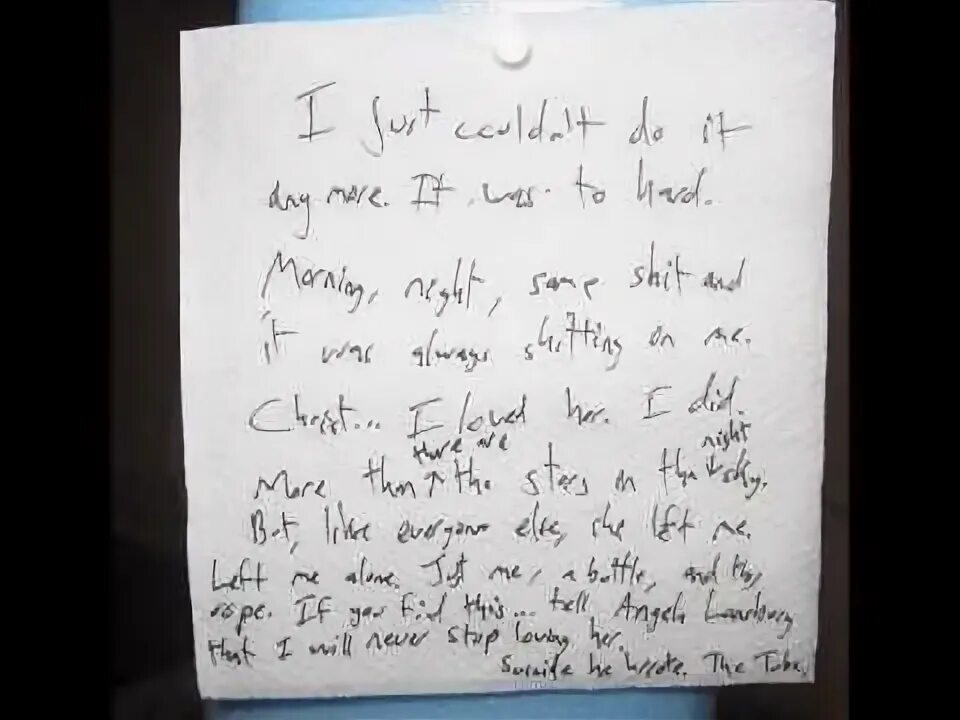 I just couldn't do it
any more. It was to hard.
Morning, night, same shit and
it was always shitting on me.
Christ... I loved her. I did.
there are night
More than the stars in the sky.
But, like everyone else, she left me.
Left me alone. Just me, a bottle, and this
rope. If you find this... tell Angela Lansbury
that I will never stop loving her.
Suicide he wrote. The Tobe.